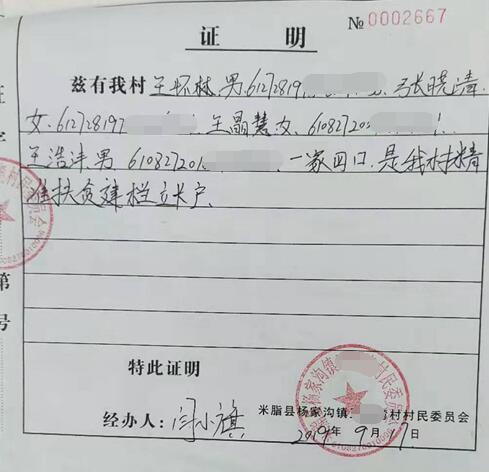 №0002667
证 明
兹有我村王怀林男612728197 张晓清
女、612728197 王晶慧女、6108272
王浩沣男 61082720 一家四口,是我村精
准扶贫建档立卡户
特此证明
经办人:闫小旗
米脂县杨家沟镇 村村民委员会
2019年9月17日
证
字
第
号